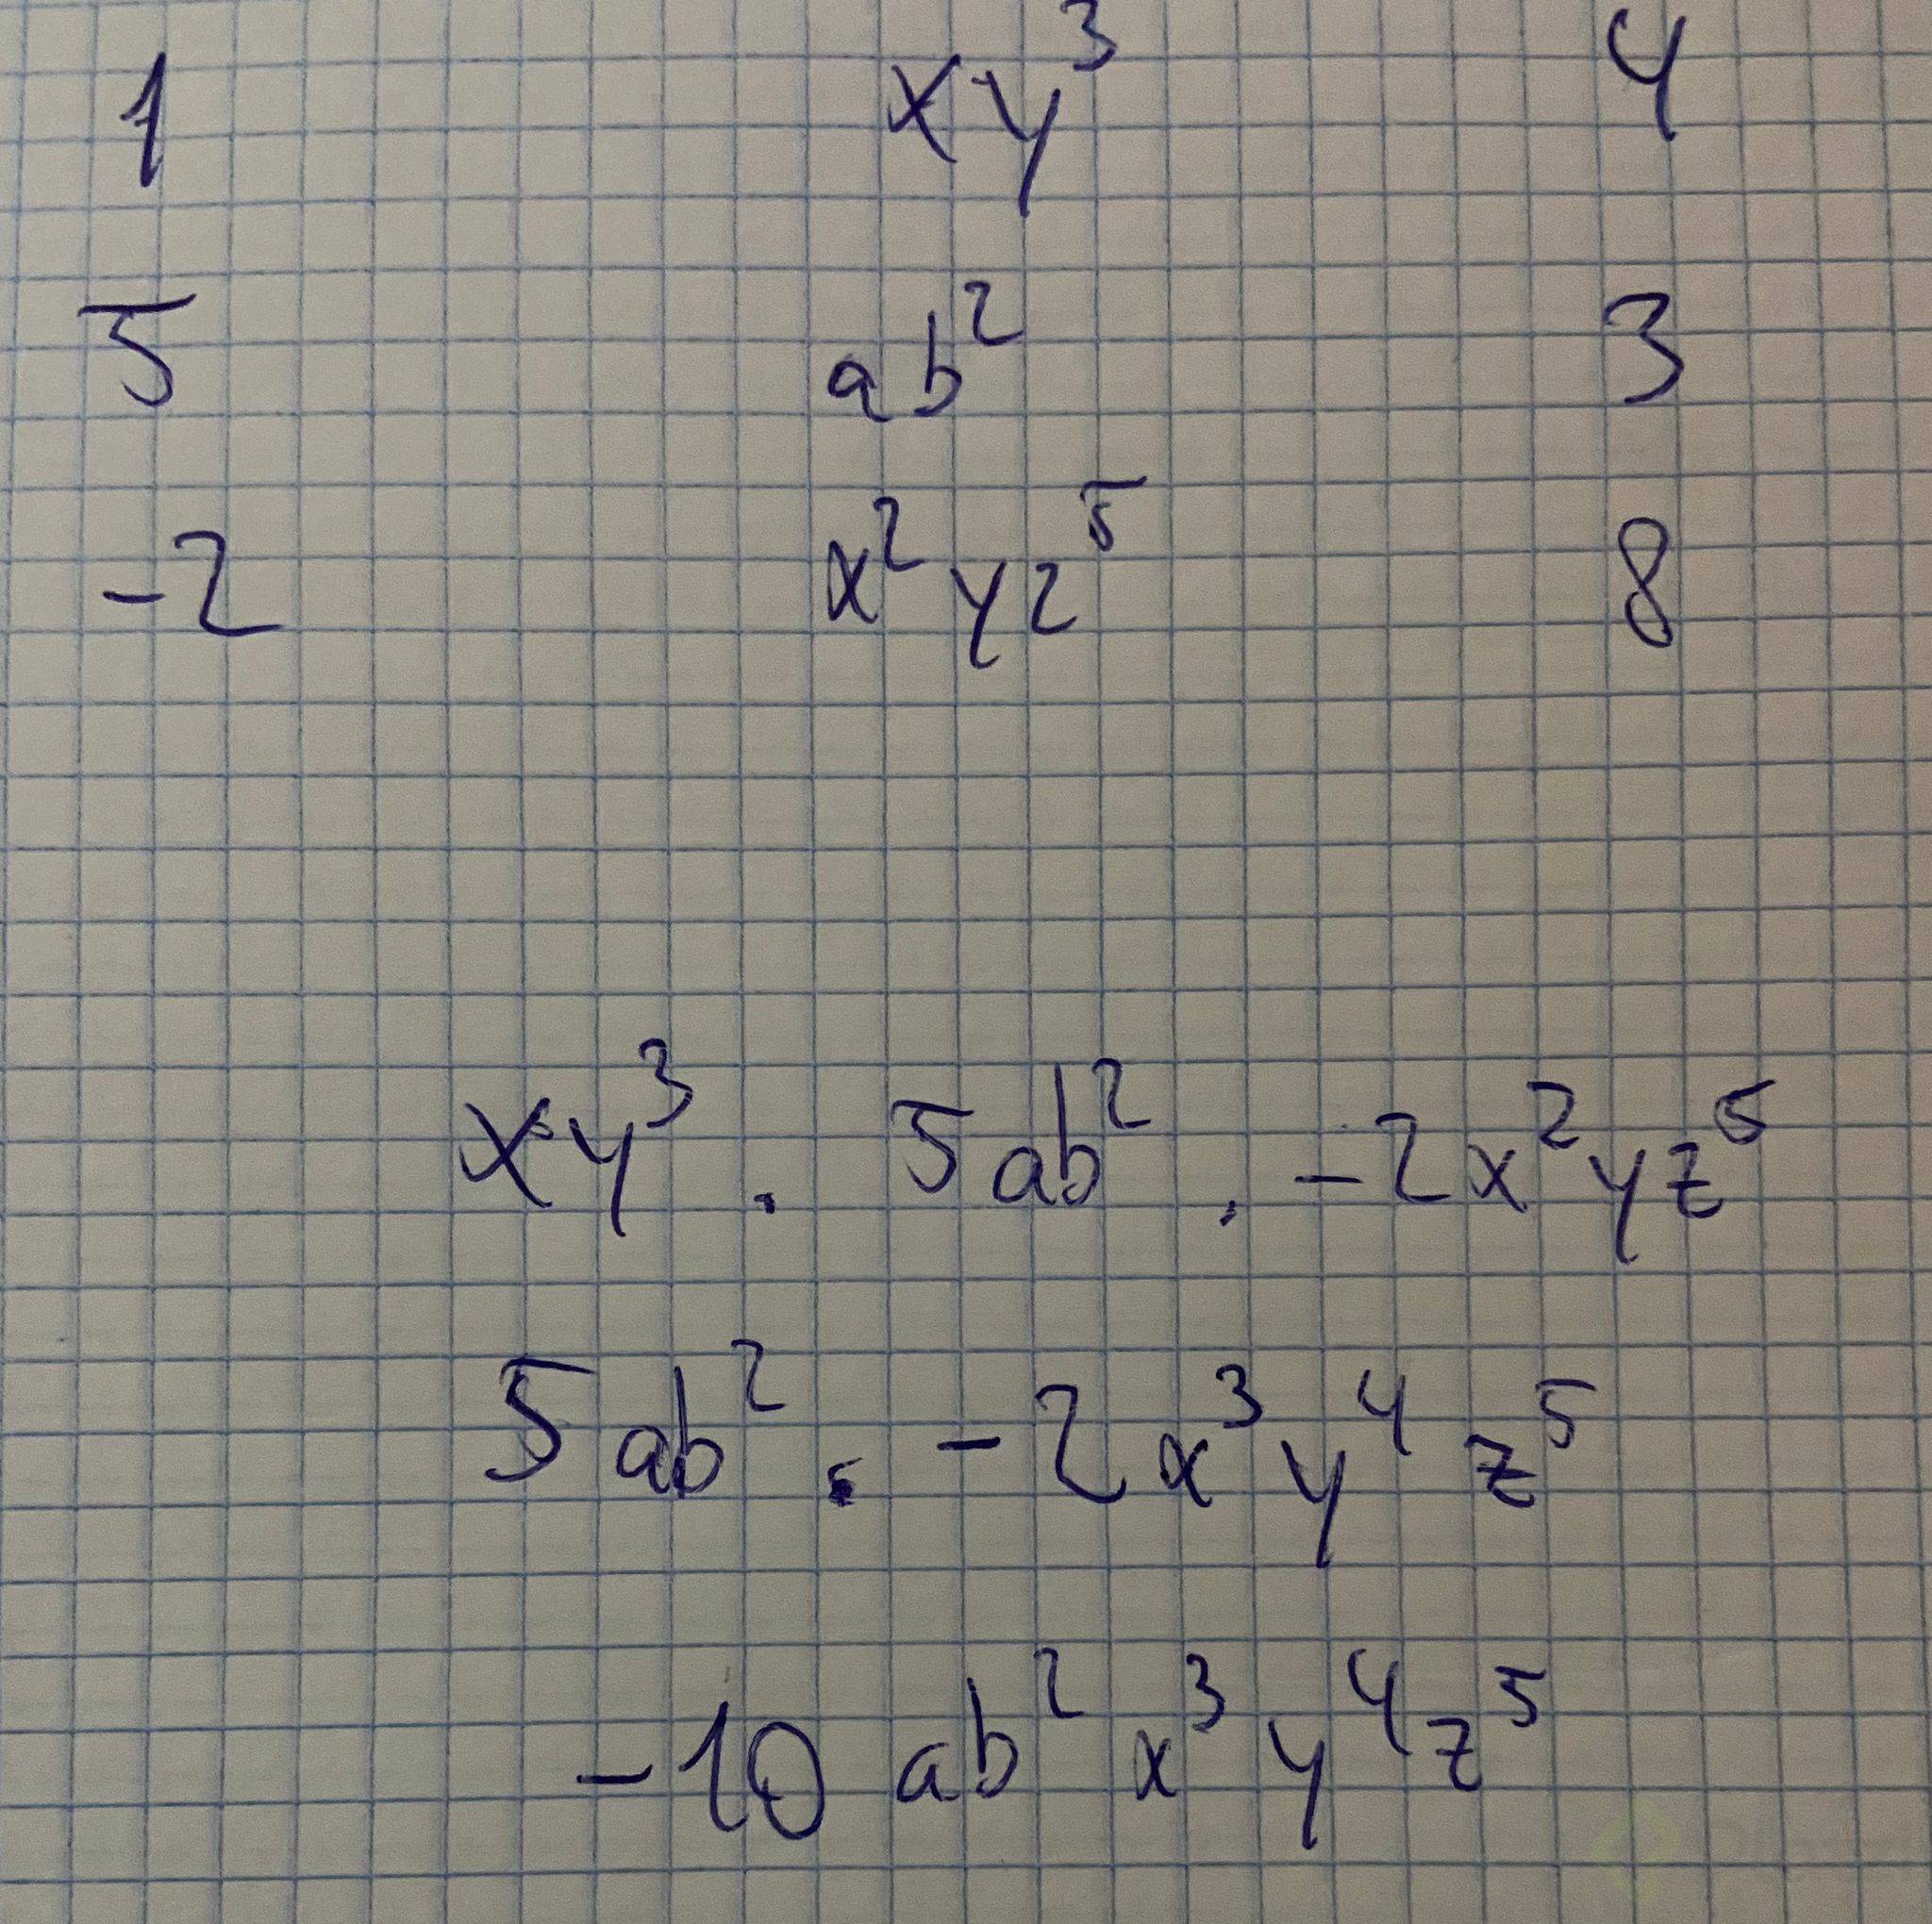 1 xy³ 4
5 ab² 3
-2 x²yz⁵ 8
xy³ . 5ab² . -2x²yz⁵
5ab² . -2x³y⁴z⁵
-10ab²x³y⁴z⁵